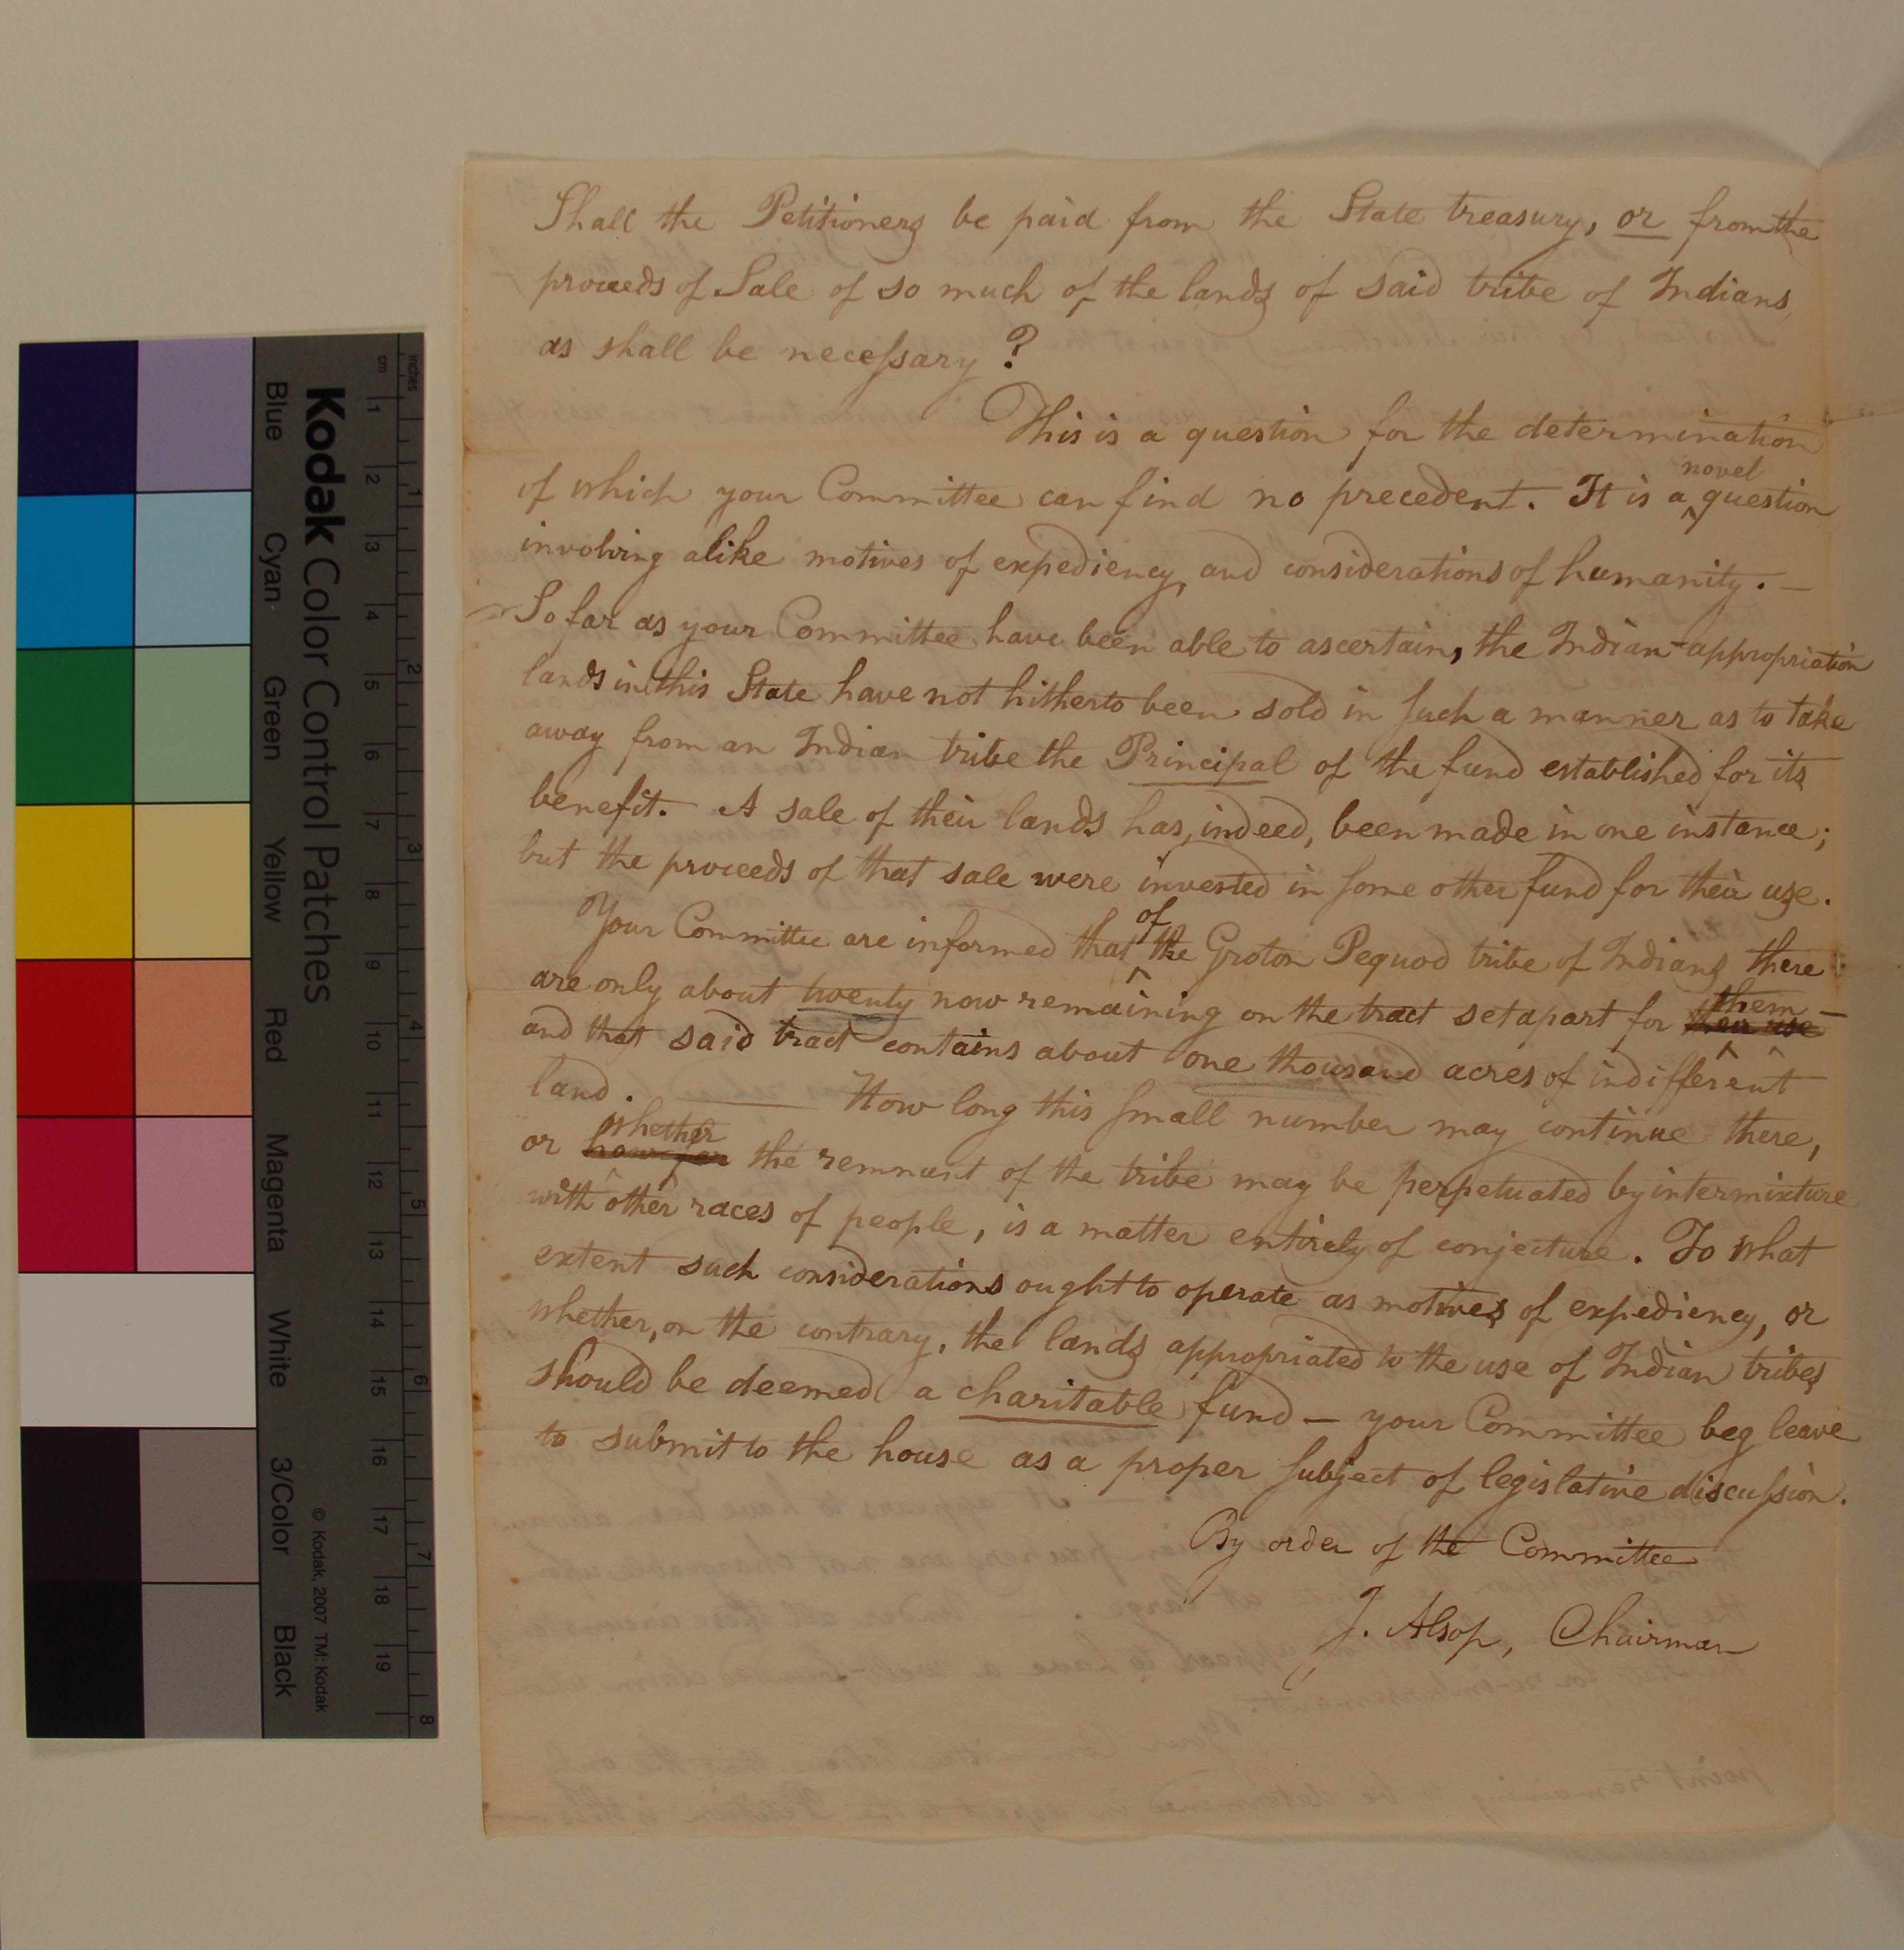 Shall the Petitioners be paid from the State treasury, or from the
proceeds of Sale of so much of the lands of said tribe of Indians
as shall be necessary?
This is a question for the determination
of which your Committee can find no precedent. It is a novel question
involving alike motives of expediency, and considerations of humanity. —
So far as your Committee have been able to ascertain, the Indian-appropriation
lands in this State have not hitherto been sold in such a manner as to take
away from an Indian tribe the Principal of the fund established for its
benefit. A sale of their lands has, indeed, been made in one instance;
but the proceeds of that sale were invested in some other fund for their use.
Your Committee are informed that of the Groton Pequod tribe of Indians there
are only about twenty now remaining on the tract set apart for their use them —
and that said tract contains about one thousand acres of indifferent
land. —— How long this small number may continue there,
or how far whether the remnant of the tribe may be perpetuated by intermixture
with other races of people, is a matter entirely of conjecture. To what
extent such considerations ought to operate as motives of expediency, or
whether, on the contrary, the lands appropriated to the use of Indian tribes
should be deemed a charitable fund — your Committee beg leave
to submit to the house as a proper subject of legislative discussion.
By order of the Committee
J. Alsop, Chairman
Kodak Color Control Patches
© Kodak, 2007 TM: Kodak
Blue Cyan Green Yellow Red Magenta White 3/Color Black
cm 1 2 3 4 5 6 7 8 9 10 11 12 13 14 15 16 17 18 19
inches 1 2 3 4 5 6 7 8